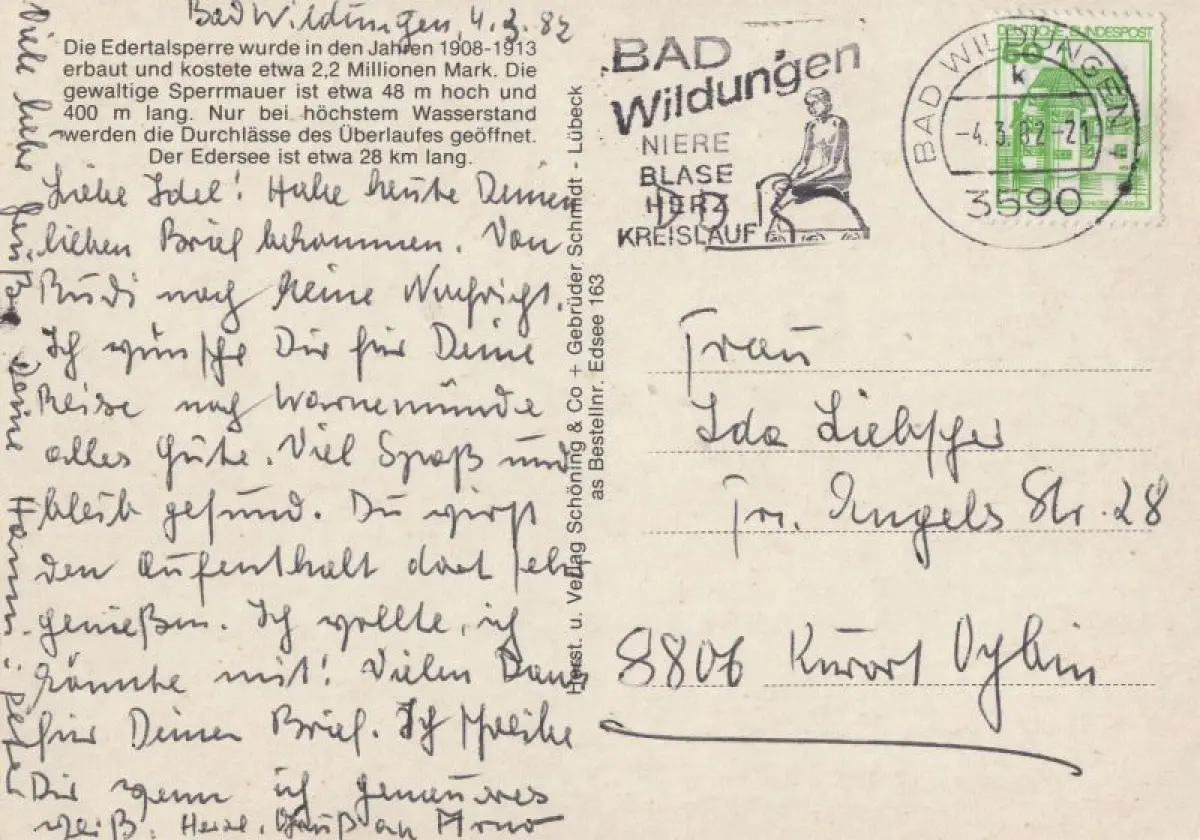 Bad Wildungen, 4.3.82
Die Edertalsperre wurde in den Jahren 1908-1913
erbaut und kostete etwa 2,2 Millionen Mark. Die
gewaltige Sperrmauer ist etwa 48 m hoch und
400 m lang. Nur bei höchstem Wasserstand
werden die Durchlässe des Überlaufes geöffnet.
Der Edersee ist etwa 28 km lang.
Liebe Idel! Habe heute Deinen
lieben Brief bekommen. Von
Rudi noch keine Nachricht.
Ich wünsche Dir für Deine
Reise nach Warnemünde
alles Gute. Viel Spaß und
bleib gesund. Du wirst
den Aufenthalt dort sehr
genießen. Ich wollte, ich
könnte mit! Vielen Dank
für Deinen Brief. Ich schreibe
Dir wenn ich genaueres
weiß. Herzl. Gruß an Arno
Viele liebe Grüße Deine
Horst. u. Verlag Schöning & Co + Gebrüder Schmidt - Lübeck
as Bestellnr. Edsee 163
BAD
Wildungen
NIERE
BLASE
HERZ
KREISLAUF
BAD WILDUNGEN 1
k
-4.3.82-21
3590
DEUTSCHE BUNDESPOST
50
Frau
Ida Liebscher
Fr. Engels Str. 28
8806 Kurort Oybin